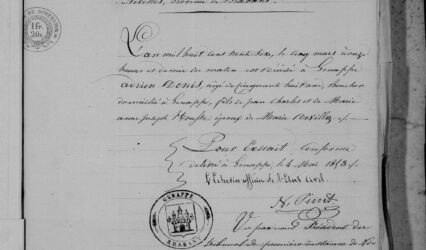 1 fr.
20c.
L'an mil huit cent trente six, le cinq mars à onze
heures et demie du matin est décédé à Genappe
Adrien Denis, âgé de cinquante huit ans, boucher
domicilié à Genappe, fils de Jean Charles et de Marie
anne joseph époux de Marie
Pour Extrait Conforme
délivré à Genappe, le 4 Mai 1853.
L'Echevin officier de l'Etat Civil.
GENAPPE
BRABANT
Vu par nous Président du
tribunal de première instance de